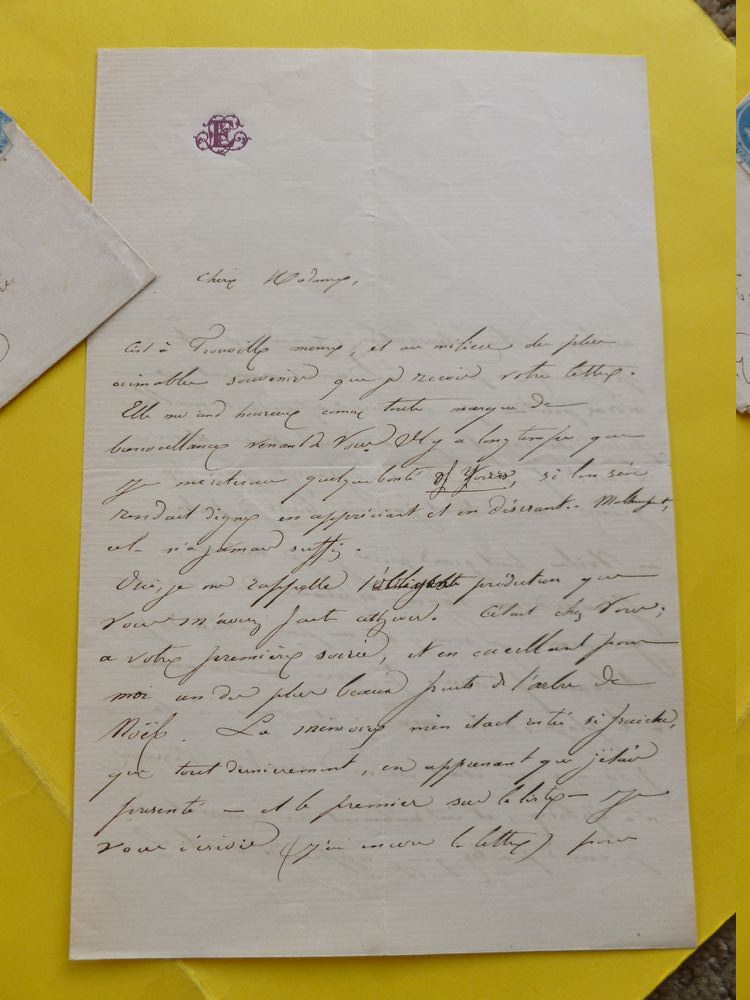 Chère Madame,
C'est à Trouville même, et au milieu des plus
aimables souvenirs que je reçois votre lettre.
Elle me rend heureux comme toute marque de
bienveillance venant de Vous. Il y a longtemps que
je mériterais quelque bonté si l'on s'en
rendait digne en appréciant et en désirant.
cela n'a jamais suffi.
Oui, je me rappelle prédiction que
vous m'avez faite cet hiver. C'était chez Vous,
à votre première soirée, et en cueillant pour
moi un des plus beaux fruits de l'arbre de
Noël. La mémoire m'en était restée si fraiche,
que tout dernièrement, en apprenant que j'étais
présenté — et le premier sur la liste — je
vous écrivis (j'ai encore la lettre) pour